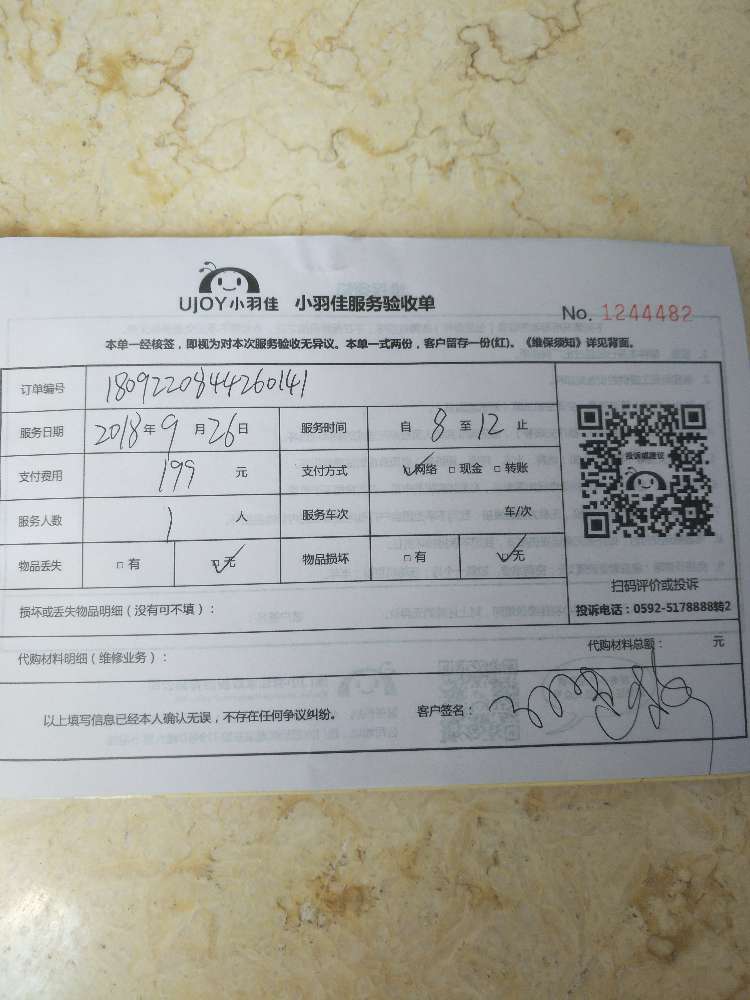 UJOY小羽佳 小羽佳服务验收单
No. 1244482
本单一经核签，即视为对本次服务验收无异议。本单一式两份，客户留存一份(红)。《维保须知》详见背面。
订单编号 1809220844260141
服务日期 2018年9月26日 服务时间 自8至12止
支付费用 199元 支付方式 ☑网络 □现金 □转账
服务人数 1人 服务车次 车/次
物品丢失 □有 ☑无 物品损坏 □有 ☑无
投诉或建议
扫码评价或投诉
投诉电话：0592-5178888转2
损坏或丢失物品明细（没有可不填）：
代购材料明细（维修业务）： 代购材料总额： 元
以上填写信息已经本人确认无误，不存在任何争议纠纷。 客户签名：